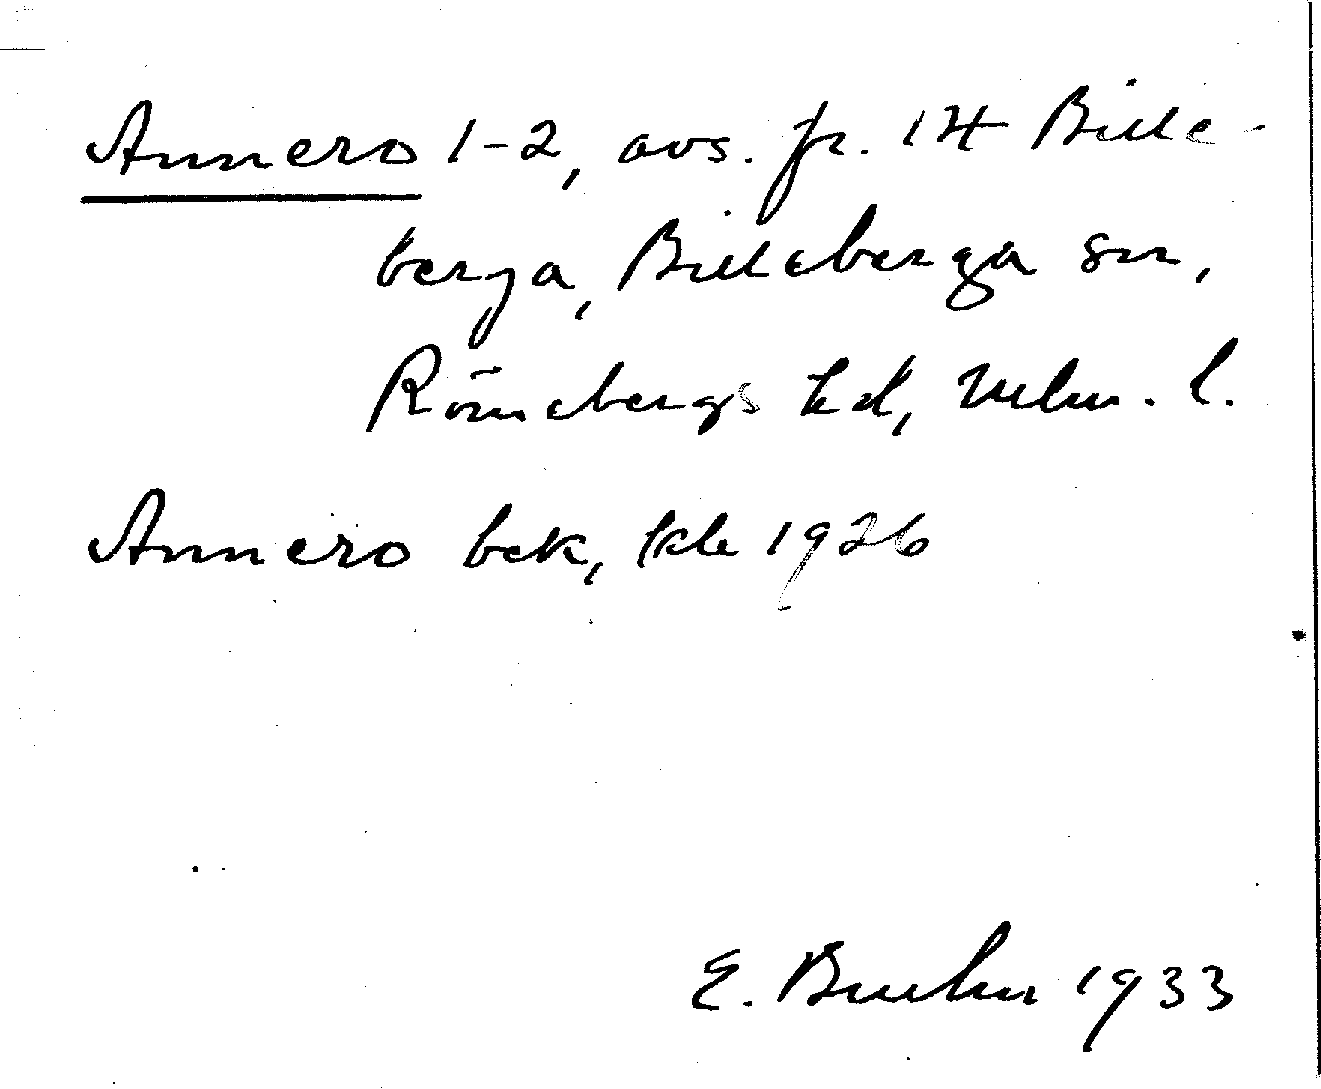 Annero 1-2, avs. fr. 14 Bille-
berga, Billeberga sn,
Rönnebergs hd, Mlm. l.
Annero bek, lkl 1926
E. Bruhn 1933